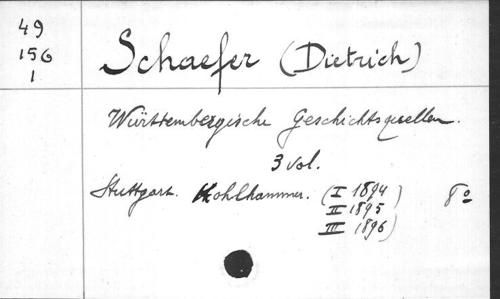 49
156
1
Schaefer (Dietrich)
Württembergische Geschichtsquellen.
3 vol.
Stuttgart. Kohlhammer. (I 1894)
II 1895
III 1896)
8º